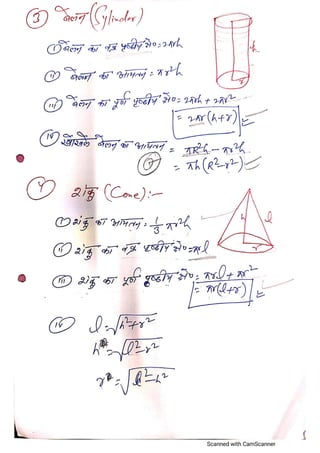 ③ बेलन (Cylinder)
① बेलन का वक्र पृष्ठीय क्षे० = 2πrh
h
r
② बेलन का आयतन = πr²h
③ बेलन का पूर्ण पृष्ठीय क्षे० = 2πrh + 2πr²
= 2πr(h+r)
④ खोखले बेलन का आयतन = πR²h - πr²h
= πh(R²-r²)
4 शंकु (Cone):-
① शंकु का आयतन = 1/3 πr²h
h l
r
② शंकु का वक्र पृष्ठीय क्षे० = πrl
③ शंकु का पूर्ण पृष्ठीय क्षे० = πrl + πr²
= πr(l+r)
④ l = √h²+r²
h = √l²-r²
r = √l²-h²
Scanned with CamScanner